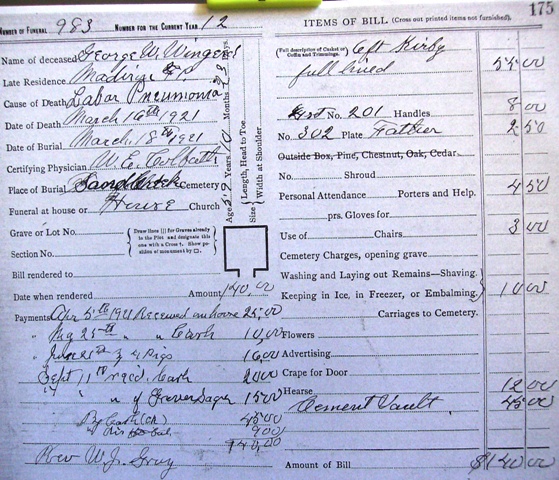 175
NUMBER OF FUNERAL 983 NUMBER FOR THE CURRENT YEAR 12
Name of deceased George W. Wingerd
Late Residence
Cause of Death Labar Pneumonia
Date of Death March 16th 1921
Date of Burial March 18th 1921
Certifying Physician W. E.
Place of Burial Sand Creek Cemetery
Funeral at house or House Church
Grave or Lot No.
Section No.
{Draw lines ||| for Graves already in the Plot and designate this one with a Cross †. Show position of monument by □.}
Bill rendered to
Date when rendered Amount 140,00
Payments Apr 5th 1921 Received on house 25.00
" Aug 25th " " Cash 10,00
" June 25th 4 Pigs 16,00
Sept 11th recd. Cash 20,00
" " " of Grover Sager 15,00
By Cash (Ck) 45,00
" bal. 9,00
140,00
Rev W. J. Gray
Age Years 10 Months Days
Size { Length, Head to Toe
Width at Shoulder
ITEMS OF BILL (Cross out printed items not furnished).
(Full description of Casket or Coffin and Trimmings. ) 6ft Kirby
full lined 55 00
No. 201 Handles 8 00
No. 302 Plate Father 2 50
Outside Box, Pine, Chestnut, Oak, Cedar
No. Shroud
Personal Attendance Porters and Help. 4 50
prs. Gloves for
Use of Chairs 3 00
Cemetery Charges, opening grave
Washing and Laying out Remains—Shaving.
Keeping in Ice, in Freezer, or Embalming. } 10 00
Carriages to Cemetery.
Flowers
Advertising
Crape for Door
Hearse 12 00
Cement Vault. 45 00
Amount of Bill $140 00